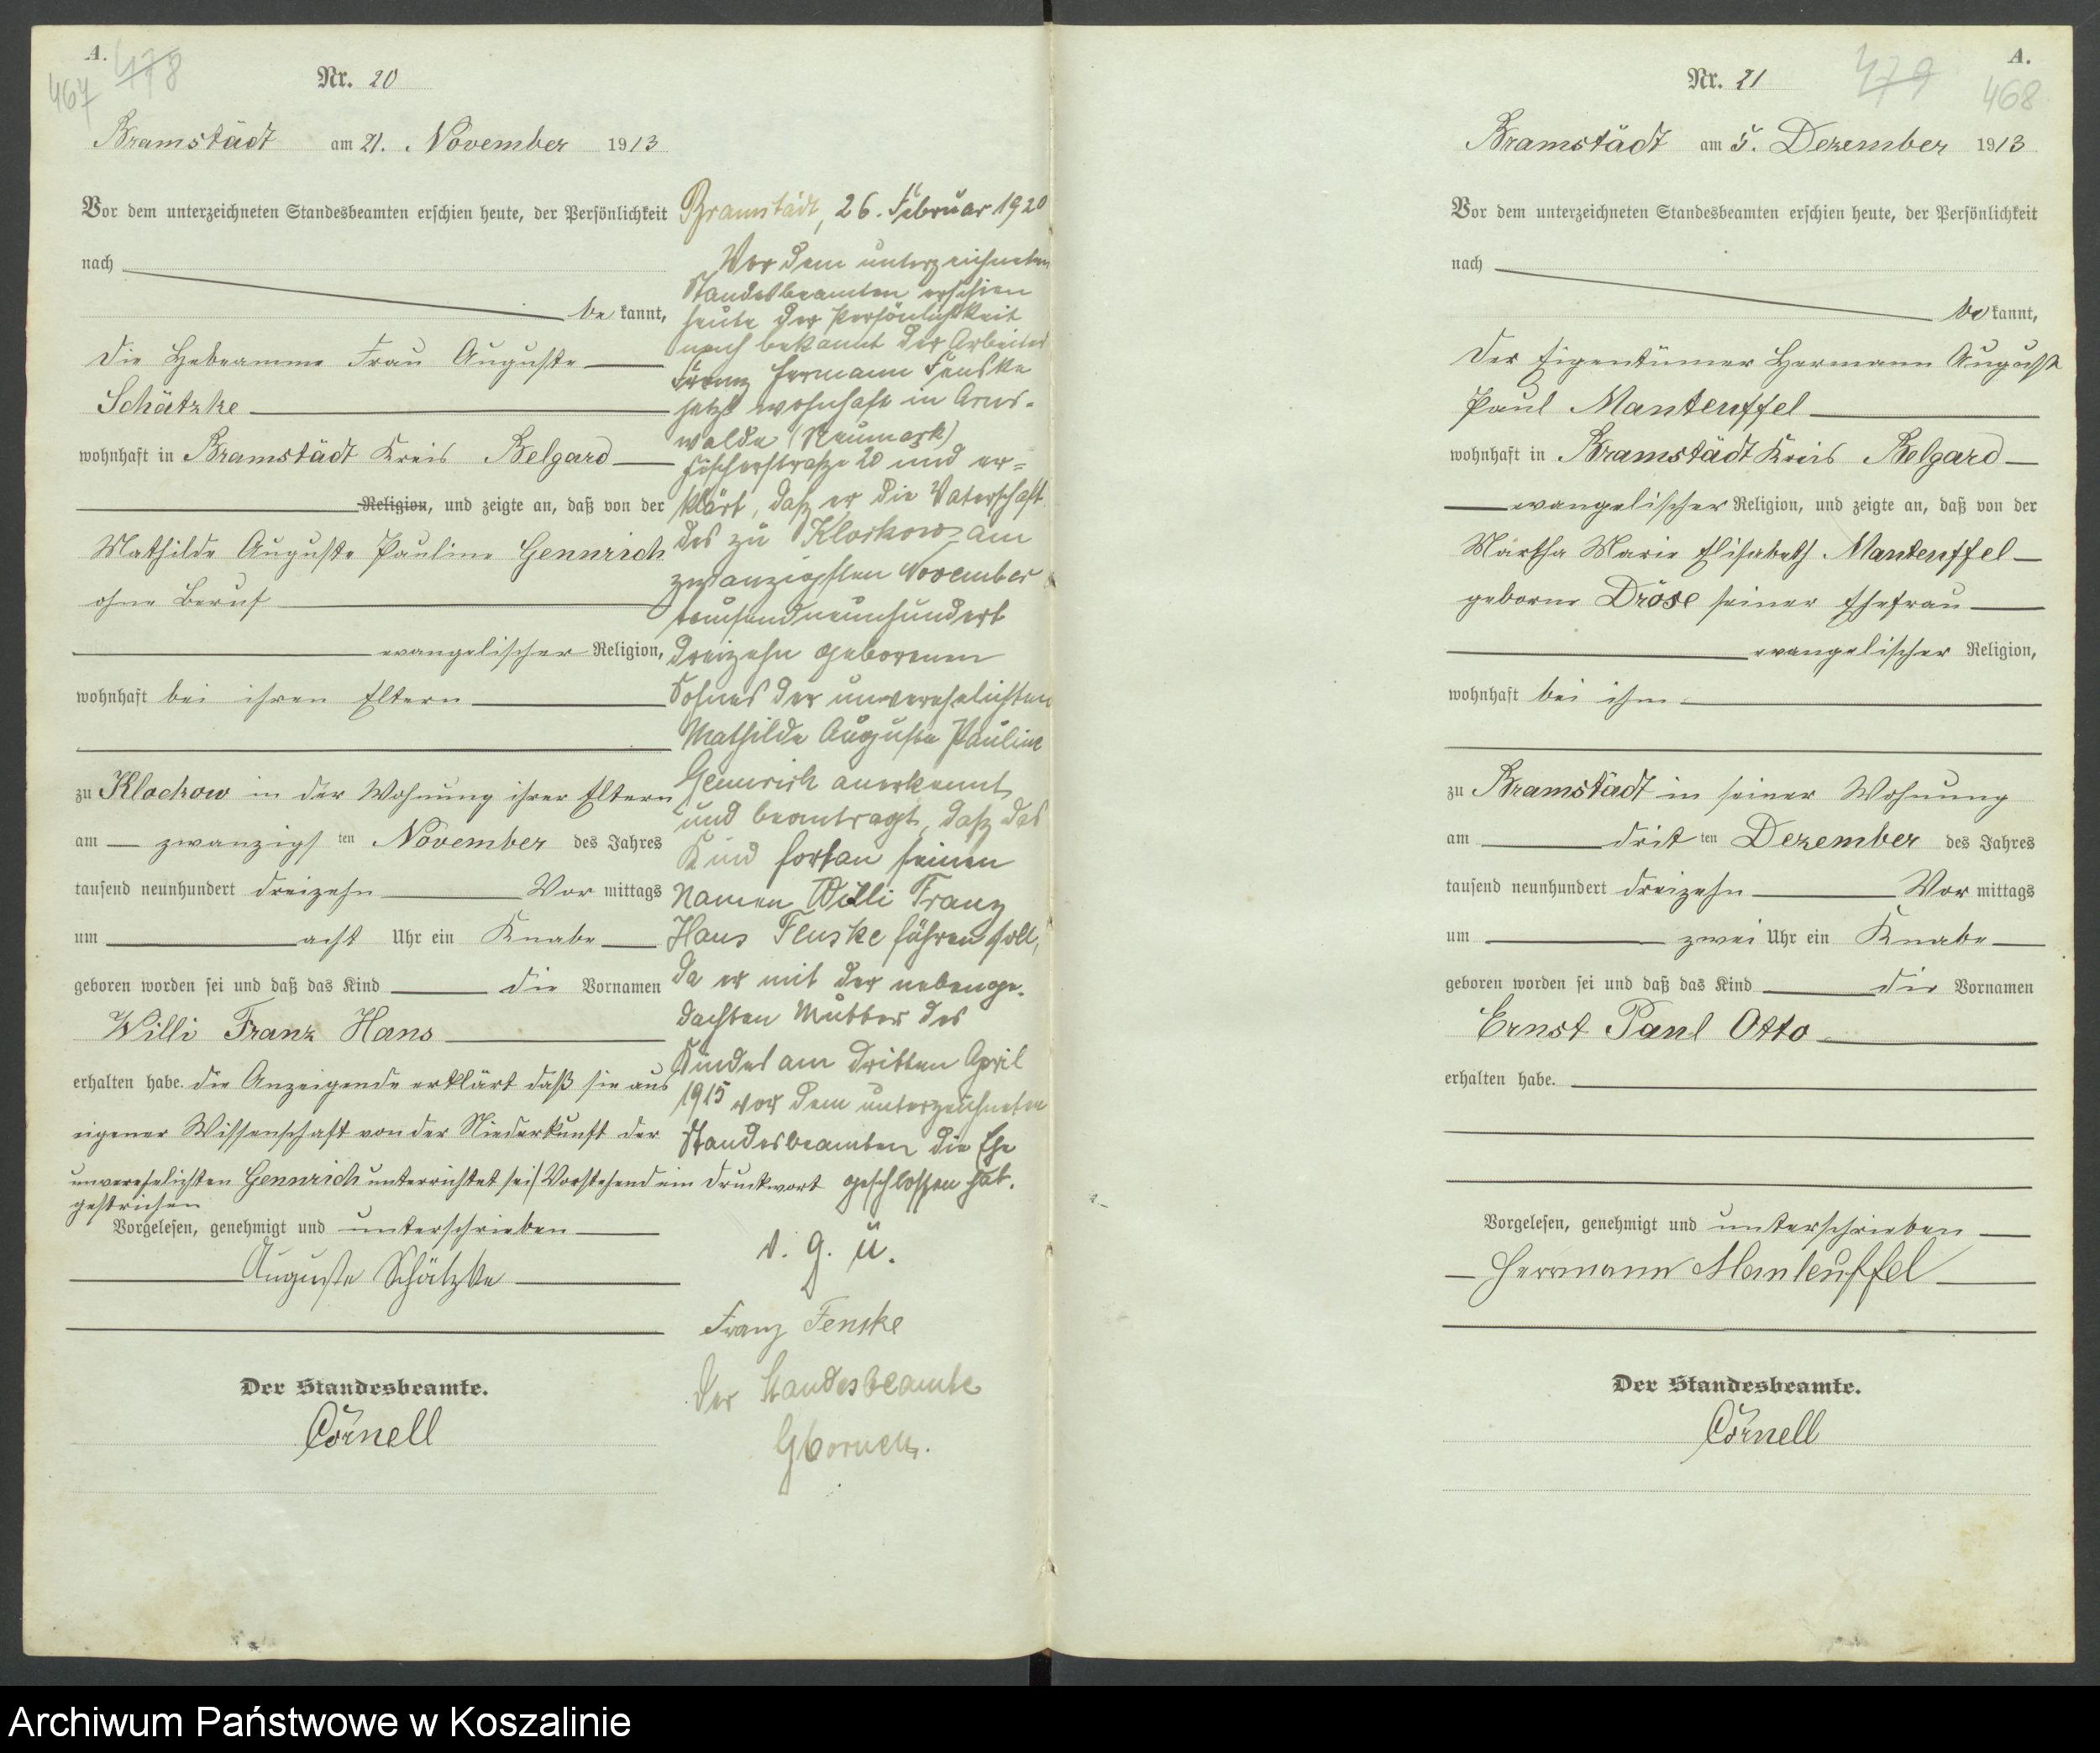 A.
478
467
Nr. 20
Bramstädt am 21. November 1913
Vor dem unterzeichneten Standesbeamten erschien heute, der Persönlichkeit
nach
be kannt,
die Hebeamme Frau Auguste
Schätzke
wohnhaft in Bramstädt Kreis Belgard
Religion, und zeigte an, daß von der
Mathilde Auguste Pauline Gennrich
ohne Beruf
evangelischer Religion,
wohnhaft bei ihren Eltern
zu Klockow in der Wohnung ihrer Eltern
am zwanzigs ten November des Jahres
tausend neunhundert dreizehn Vor mittags
um acht Uhr ein Knabe
geboren worden sei und daß das Kind die Vornamen
Willi Franz Hans
erhalten habe. die Anzeigende erklärt daß sie aus
eigener Wissenschaft von der Niederkunft der
unverehelichten Gennrich unterrichtet sei/ Vorstehend ein Druckwort
gestrichen
Vorgelesen, genehmigt und unterschrieben
Auguste Schätzke
Der Standesbeamte.
Cörnell
Bramstädt, 26. Februar 1920
Vor dem unterzeichneten
Standesbeamten erschien
heute der Persönlichkeit
nach bekannt der Arbeiter
Franz Hermann Fenske
jetzt wohnhaft in Arns-
walde (Neumark)
Fischerstraße 20 und er-
klärt, daß er die Vaterschaft
des zu Klockow am
zwanzigsten November
tausendneunhundert
dreizehn geborenen
Sohnes der unverehelichten
Mathilde Auguste Pauline
Gennrich anerkennt
und beantragt, daß das
Kind fortan seinen
Namen Willi Franz
Hans Fenske führen soll,
da er mit der nebenge-
dachten Mutter des
Kindes am dritten April
1915 vor dem unterzeichneten
Standesbeamten die Ehe
geschlossen hat.
v. g. u.
Franz Fenske
Der Standesbeamte
A.
479
468
Nr. 21
Bramstädt am 5. Dezember 1913
Vor dem unterzeichneten Standesbeamten erschien heute, der Persönlichkeit
nach
be kannt,
der Eigentümer Hermann August
Paul Manteuffel
wohnhaft in Bramstädt Kreis Belgard
evangelischer Religion, und zeigte an, daß von der
Martha Marie Elisabeth Manteuffel
geborne Dröse seiner Ehefrau
evangelischer Religion,
wohnhaft bei ihm
zu Bramstädt in seiner Wohnung
am drit ten Dezember des Jahres
tausend neunhundert dreizehn Vor mittags
um zwei Uhr ein Knabe
geboren worden sei und daß das Kind die Vornamen
Ernst Paul Otto
erhalten habe.
Vorgelesen, genehmigt und unterschrieben
Hermann Manteuffel
Der Standesbeamte.
Cörnell
Archiwum Państwowe w Koszalinie